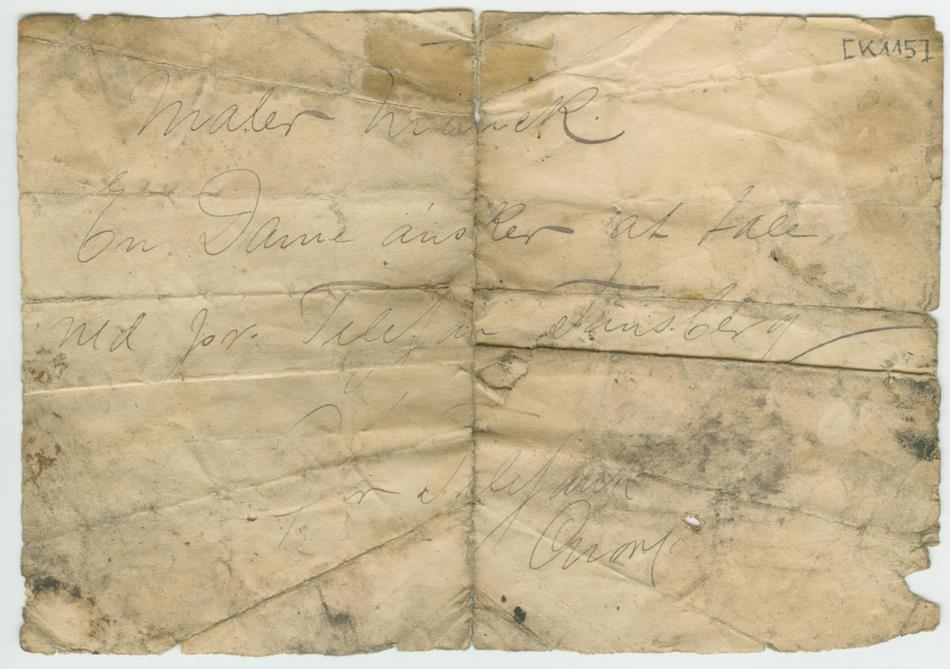 [K1115]
Maler Munck.
En Dame ánsker at tale
med pr. Telefon Tánsberg
For Telefonen